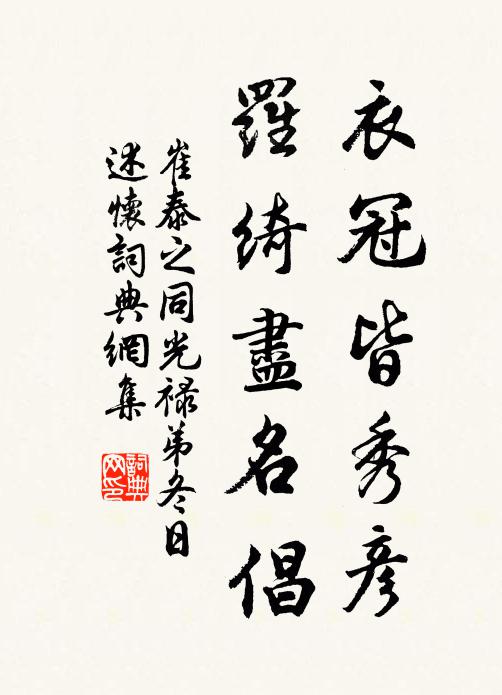 衣冠皆秀彦
羅綺盡名倡
崔泰之同光禄弟冬日
述懷詞典網集
詞典
网印